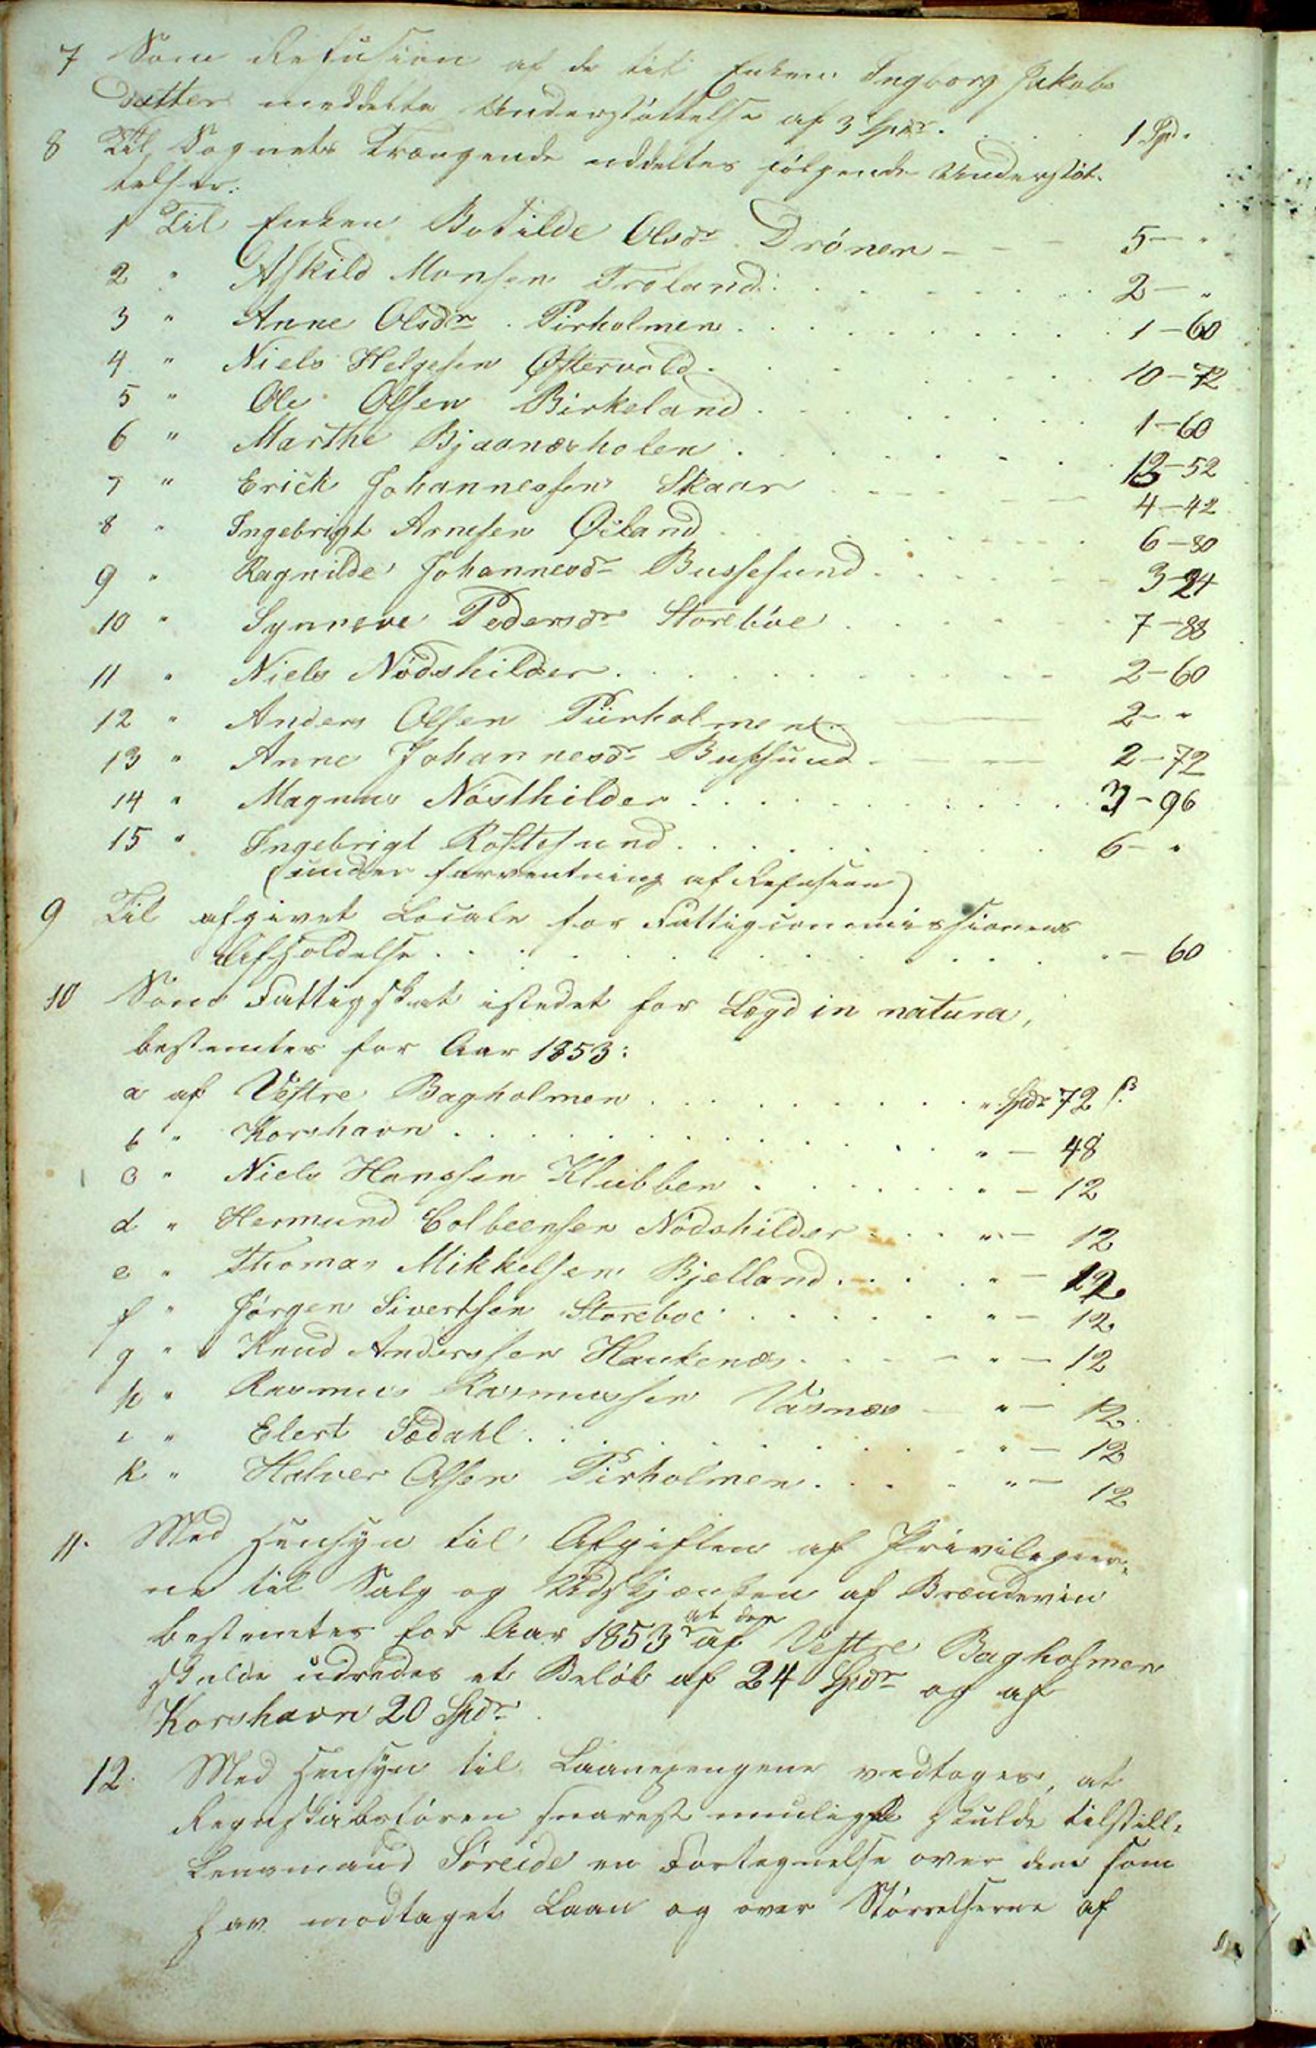 7 Som Refusion af de til Enken Ingborg Jakobs
datter meddelte Understøttelse af 3 Spdr. . . . 1 Spd "
8 Til Sognets Trængende uddeltes følgende Understøt-
telser:
1 Til Enken Botilde Olsdr Drönen - - - 5 - "
2 " Askild Monsen Troland . . . . 2 - "
3 " Anne Olsdr. Pirholmen . . . . 1 - 60
4 " Niels Helgesen Østervold . . . . 10 - 72
5 " Ole Olsen Birkeland . . . . 1 - 60
6 " Marthe Bjaanæsholen . . . . 13 - 52
7 " Erick Johannessen Skaar - - - 4 - 42
8 " Ingebrigt Arnesen Øeland . . . . 6 - 80
9 " Ragnilde Johannesdr Bussesund . . . . 3 - 24
10 " Synneve Pedersdr Storebøe . . . . 7 - 88
11 " Niels Nödshilder . . . . 2 - 60
12 " Anders Olsen Pirholmen - - - 2 - "
13 " Anne Johannesdr Bussund - - - 2 - 72
14 " Magnus Nösthilder . . . . 3 - 96
15 " Ingebrigt Rostesund . . . . 6 - "
(under Forventning af Refusion)
9 Til afgivet Locale for Fattigcommissionens
Afholdelse . . . . - 60
10 Som Fattigskat istedet for Lægd in natura,
bestemtes for Aar 1853:
a af Vestre Bagholmen . . . . " Spdr 72 ß
b " Korshavn . . . . " - 48
c " Niels Hanssen Klubben . . . . " - 12
d " Hermund Colbeensen Nödshilder . . . " - 12
e " Thomas Mikkelsen Bjelland . . . . " - 12
f " Jörgen Sivertsen Storeboe . . . . " - 12
g " Knud Anderssen Haukenæs . . . - " - 12
h " Rasmus Rasmussen Vasnæs - " - 12
i " Elert Sædahl . . . . " - 12
k " Halver Olsen Pirholmen . . . . " - 12
11. Med Hensyn til Afgiften af Privilegier-
ne til Salg og Udskjænken af Brændeviin
bestemtes for Aar 1853 at der af Vestre Bagholmen
skulde udredes et Beløb af 24 Spdr og af
Korshavn 20 Spdr.
12. Med Hensyn til Laanepengene vedtoges, at
Regnskabsføreren snarest muligst skulde tilstille
Lensmand Søreide en Fortegnelse over dem som
har modtaget Laan og over Størrelserne af